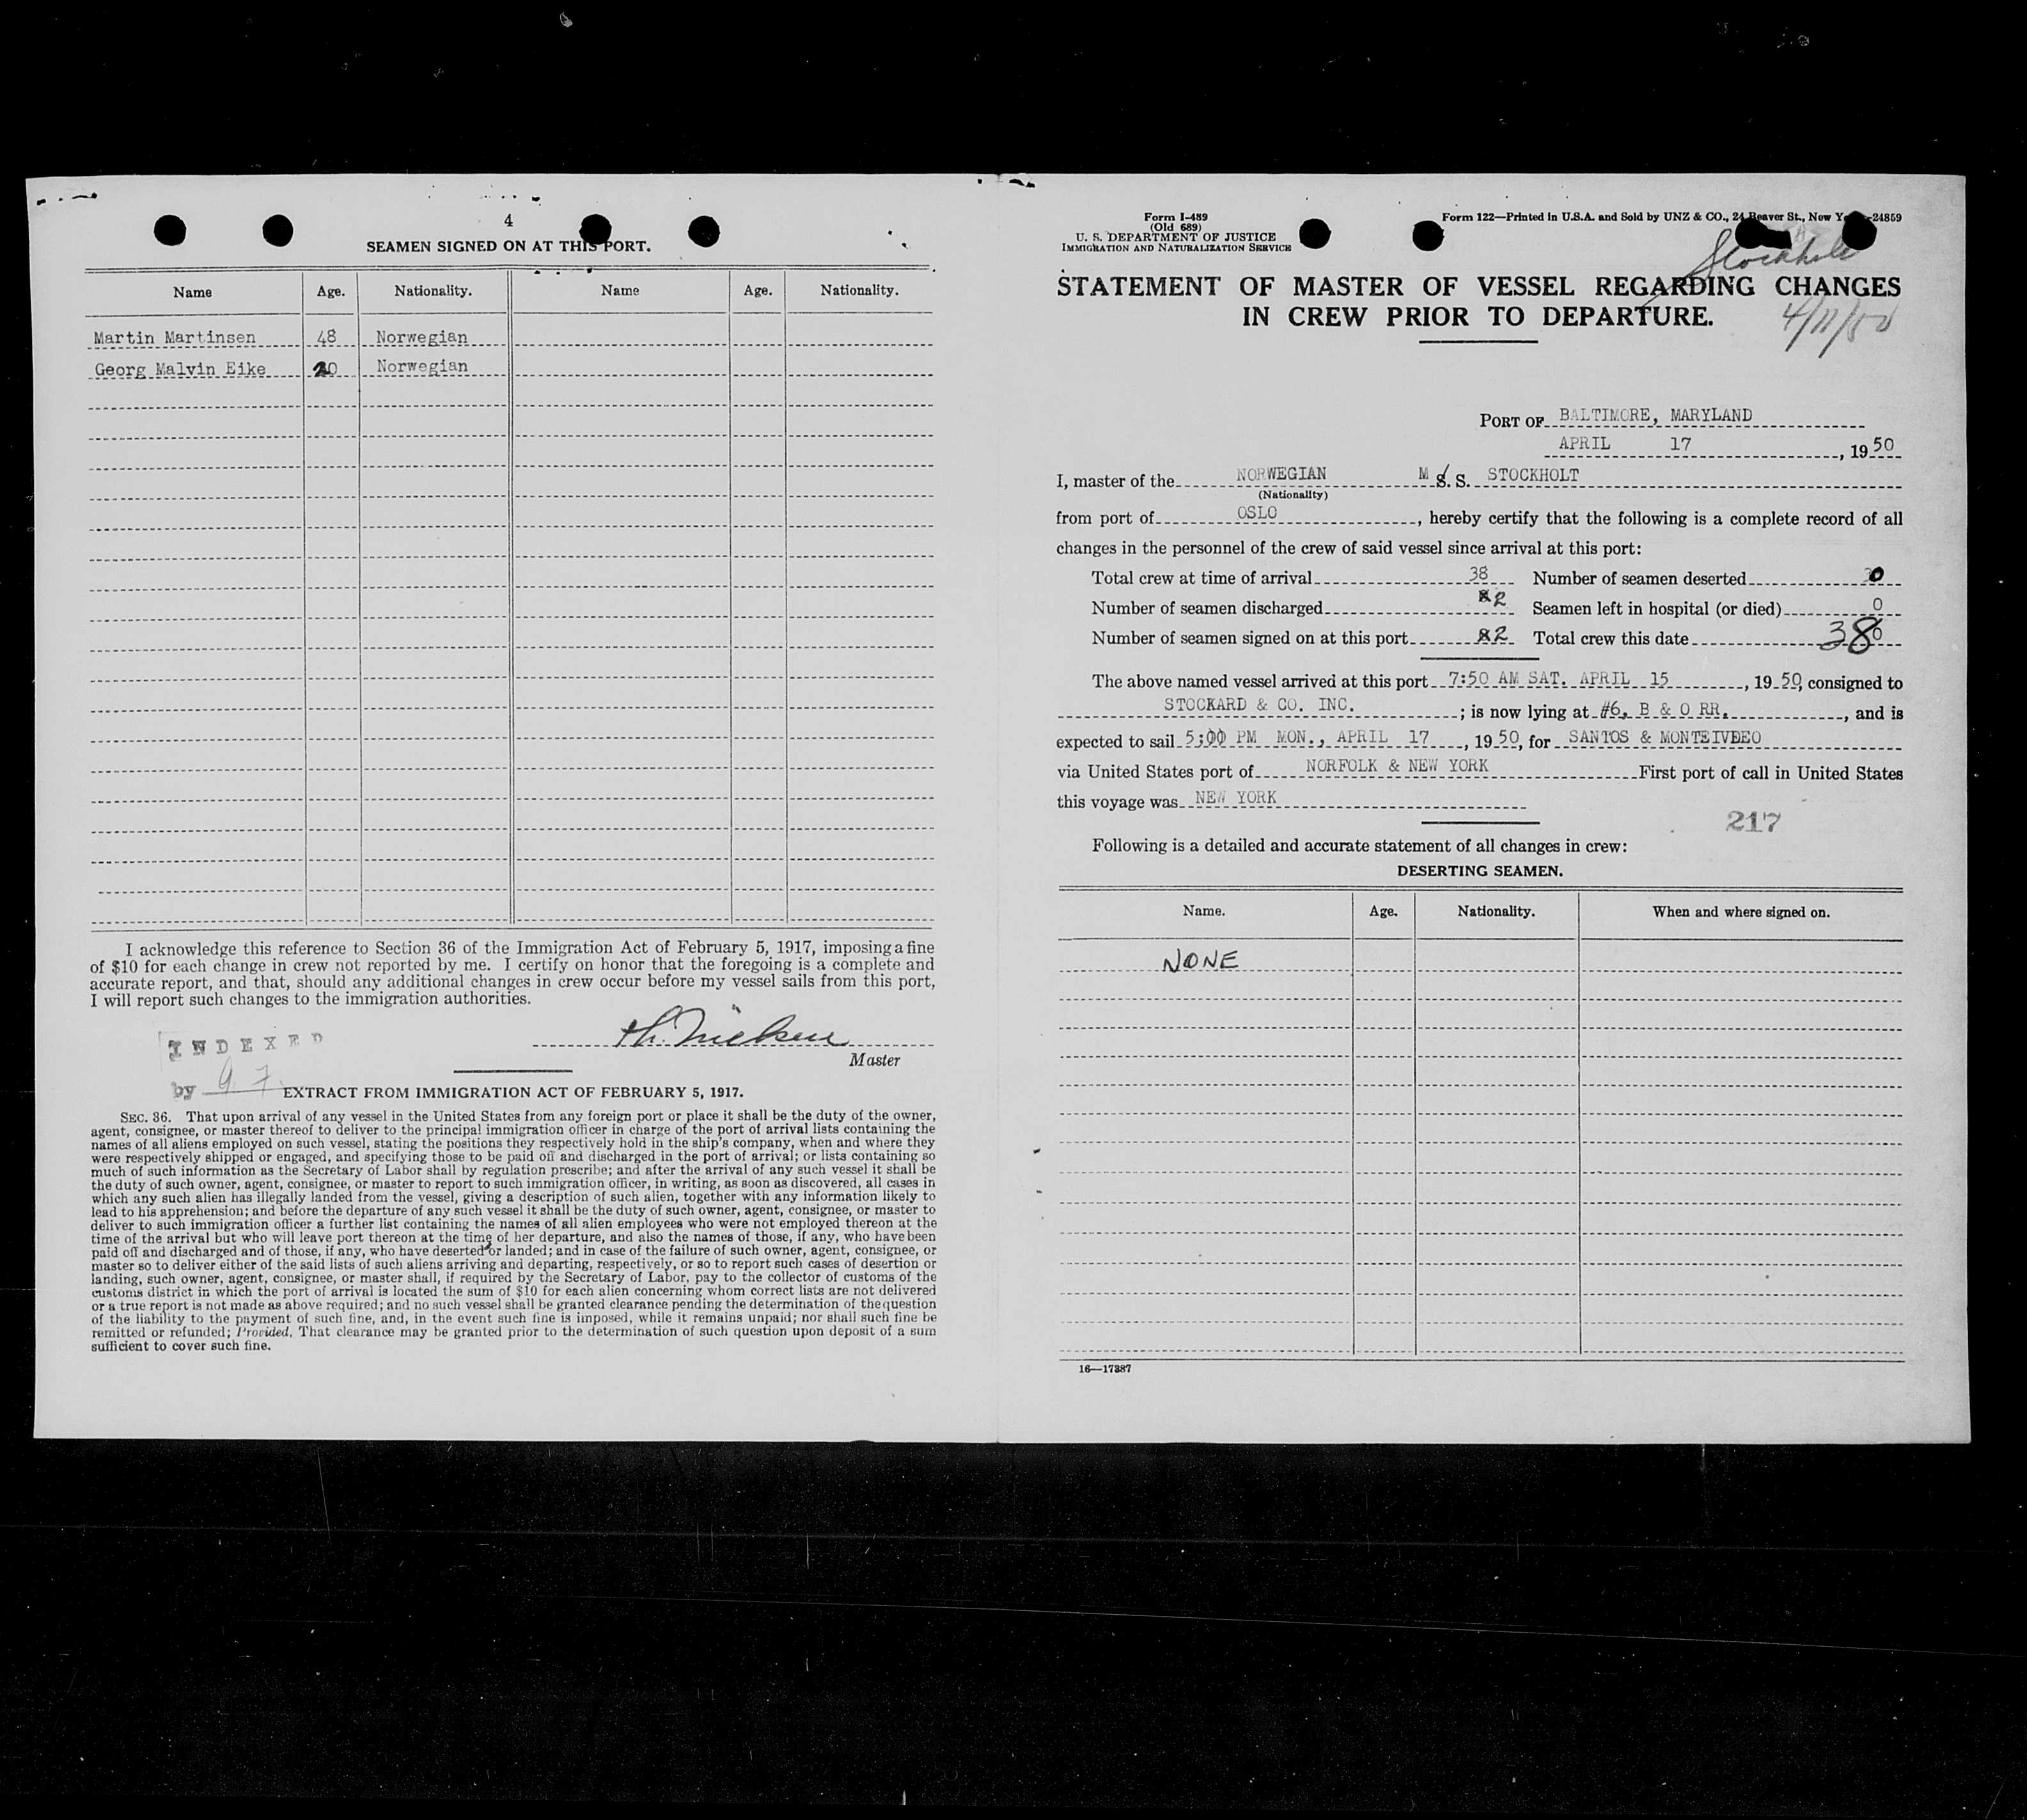 4
SEAMEN SIGNED ON AT THIS PORT.
Name Age. Nationality. Name Age. Nationality.
Martin Martinsen 48 Norwegian
Georg Malvin Eike 20 Norwegian
I acknowledge this reference to Section 36 of the Immigration Act of February 5, 1917, imposing a fine
of $10 for each change in crew not reported by me. I certify on honor that the foregoing is a complete and
accurate report, and that, should any additional changes in crew occur before my vessel sails from this port,
I will report such changes to the immigration authorities.
INDEXED
Master
by
EXTRACT FROM IMMIGRATION ACT OF FEBRUARY 5, 1917.
SEC. 36. That upon arrival of any vessel in the United States from any foreign port or place it shall be the duty of the owner,
agent, consignee, or master thereof to deliver to the principal immigration officer in charge of the port of arrival lists containing the
names of all aliens employed on such vessel, stating the positions they respectively hold in the ship's company, when and where they
were respectively shipped or engaged, and specifying those to be paid off and discharged in the port of arrival; or lists containing so
much of such information as the Secretary of Labor shall by regulation prescribe; and after the arrival of any such vessel it shall be
the duty of such owner, agent, consignee, or master to report to such immigration officer, in writing, as soon as discovered, all cases in
which any such alien has illegally landed from the vessel, giving a description of such alien, together with any information likely to
lead to his apprehension; and before the departure of any such vessel it shall be the duty of such owner, agent, consignee, or master to
deliver to such immigration officer a further list containing the names of all alien employees who were not employed thereon at the
time of the arrival but who will leave port thereon at the time of her departure, and also the names of those, if any, who have been
paid off and discharged and of those, if any, who have deserted or landed; and in case of the failure of such owner, agent, consignee, or
master so to deliver either of the said lists of such aliens arriving and departing, respectively, or so to report such cases of desertion or
landing, such owner, agent, consignee, or master shall, if required by the Secretary of Labor, pay to the collector of customs of the
customs district in which the port of arrival is located the sum of $10 for each alien concerning whom correct lists are not delivered
or a true report is not made as above required; and no such vessel shall be granted clearance pending the determination of the question
of the liability to the payment of such fine, and, in the event such fine is imposed, while it remains unpaid; nor shall such fine be
remitted or refunded; Provided, That clearance may be granted prior to the determination of such question upon deposit of a sum
sufficient to cover such fine.
Form I-489
(Old 689)
U. S. DEPARTMENT OF JUSTICE
IMMIGRATION AND NATURALIZATION SERVICE
Form 122—Printed in U.S.A. and Sold by UNZ & CO., 24 Beaver St., New Y 24859
STATEMENT OF MASTER OF VESSEL REGARDING CHANGES
IN CREW PRIOR TO DEPARTURE.
4/11/50
PORT OF BALTIMORE, MARYLAND
APRIL 17, 1950
I, master of the NORWEGIAN M S. S. STOCKHOLT
(Nationality)
from port of OSLO, hereby certify that the following is a complete record of all
changes in the personnel of the crew of said vessel since arrival at this port:
Total crew at time of arrival 38 Number of seamen deserted 0
Number of seamen discharged 2 Seamen left in hospital (or died) 0
Number of seamen signed on at this port 2 Total crew this date 38
The above named vessel arrived at this port 7:50 AM SAT. APRIL 15, 1950, consigned to
STOCKARD & CO. INC.; is now lying at #6, B & O RR., and is
expected to sail 5:00 PM MON., APRIL 17, 1950, for SANTOS & MONTEIVDEO
via United States port of NORFOLK & NEW YORK First port of call in United States
this voyage was NEW YORK
217
Following is a detailed and accurate statement of all changes in crew:
DESERTING SEAMEN.
Name. Age. Nationality. When and where signed on.
NONE
16—17387